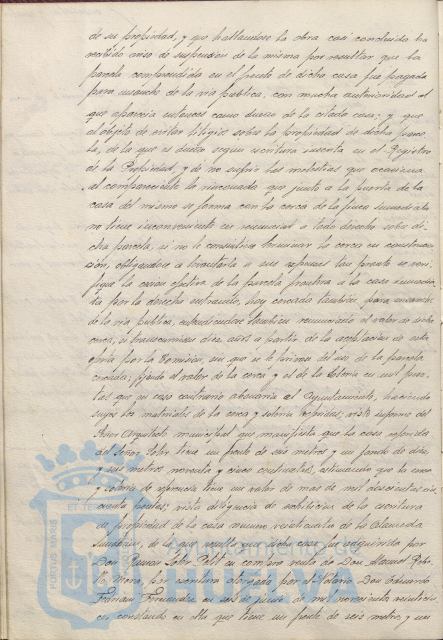 de su propiedad, y que hallandose la obra casi concluida ha
recibido aviso de suspension de la misma por resultar que la
parcela comprendida en el frente de dicha casa fue pagada
para ensanche de la via publica, con mucha anterioridad al
que aparecia entonces como dueño de la citada casa; y que
al objeto de evitar litigio sobre la propiedad de dicha parce-
la, de la que es dueño segun escritura inscrita en el Registro
de la Propiedad, y de no sufrir las molestias que ocasiona
al compareciente la rinconada que junto a la puerta de la
casa del mismo se forma con la cerca de la finca inmediata
no tiene inconveniente en renunciar a todo derecho sobre di-
cha parcela, si se le consintiera terminar la cerca en construc-
cion, obligandose a levantarla a sus expensas tan pronto se veri-
fique la cesion efectiva de la parcela frontera a la casa inmedia-
ta por la derecha entrando, hoy cercada tambien, para ensanche
de la via publica, entendiendose tambien renunciado el valor de dicha
cerca, si transcurriesen diez años a partir de la aceptacion de esta
oferta por la Comision, sin que se le privase del uso de la parcela
cercada; fijando el valor de la cerca y el de la soleria en mil pese-
tas que en caso contrario abonaria el Ayuntamiento, haciendo
suyos los materiales de la cerca y soleria repetidas; visto informe del
Señor Arquitecto municipal que manifiesta que la casa referida
del Señor Soler tiene un frente de seis metros y un fondo de diez
y seis metros noventa y cinco centimetros, estimando que la cerca
y soleria de referencia tiene un valor de mas de mil doscientas cin-
cuenta pesetas; vista diligencia de exhibicion de la escritura
de propiedad de la casa numero veinticuatro de la Alameda
de la que resulta que dicha casa fue adquirida por
Don Soler Petit en compra venta de Don Manuel
Mora, por escritura otorgada por el Notario Don Eduardo
Fernandez en seis de Junio de mil novecientos veintiseis
en constando en ella que tiene un frente de seis metros, y un
PORTUS ILLICIS
ET TE
Ayuntamiento de